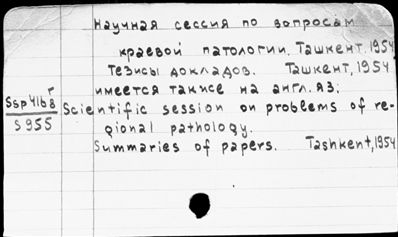 Научная сессия по вопросам
краевой патологии. Ташкент. 1954
Тезисы докладов. Ташкент, 1954
имеется также на англ. яз:
Scientific session on problems of re-
gional pathology.
Summaries of papers. Tashkent, 1954
Ssp41b8
S955